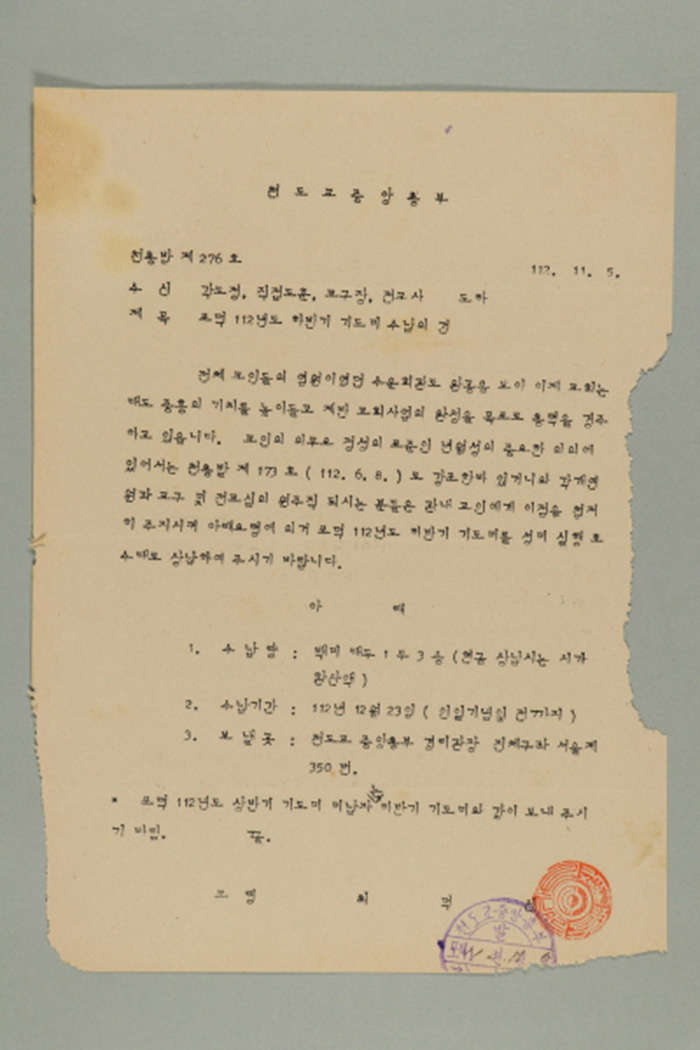 천도교중앙총부
천총발 제 276 호
112. 11. 5.
수 신 각도정, 직접도훈, 교구장, 전교사 도하
제 목 포덕 112년도 하반기 기도미 수납의 건
전체 교인들의 염원이었던 수운회관도 완공을 보아 이제 교회는
대도 중흥의 기치를 높이들고 제반 교회사업의 완성을 목표로 총력을 경주
하고 있읍니다. 교인의 의무요 정성의 표준인 년월성의 중요한 의의에
있어서는 천총발 제 173 호 ( 112. 6. 8. ) 로 강조한바 있거니와 각개연
원과 교구 및 전교실의 원주직 되시는 분들은 관내 교인에게 이점을 철저
히 주지시켜 아래요령에 의거 포덕 112년도 하반기 기도미를 성미 실행 호
수대로 상납하여 주시기 바랍니다.
아 래
1. 수 납 량 : 백미 대두 1 두 3 승 (현금 상납시는 시가
환산액 )
2. 수납기간 : 112년 12월 23일 ( 인일기념일 전까지 )
3. 보 낼 곳 : 천도교 중앙총부 경리관장 진체구좌 서울제
350 번.
* 포덕 112년도 상반기 기도미 미납자 하반기 기도미와 같이 보내 주시
기 바람. 끝.
교 령 최 덕
천도교중앙총부
발